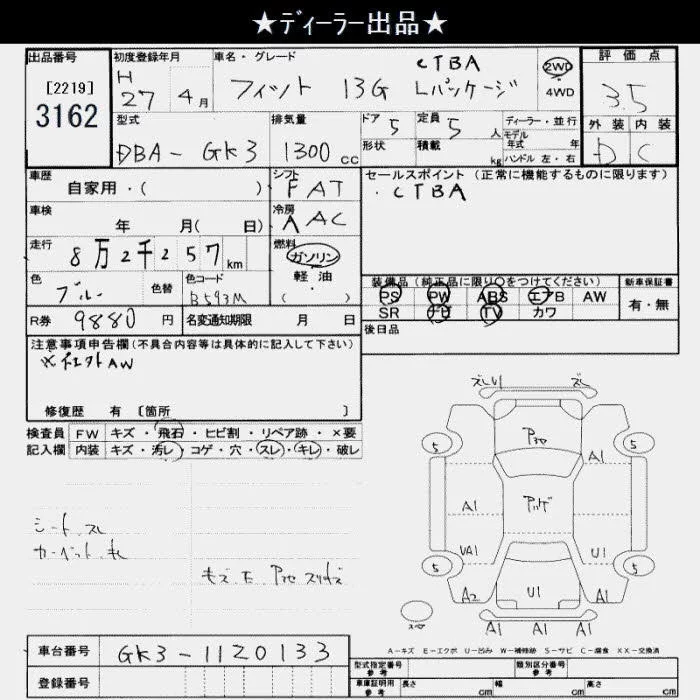 ★ディーラー出品★
出品番号
[2219]
3162
初度登録年月
H 27年 4月
車名・グレード
フィット 13G Lパッケージ
CTBA
2WD
4WD
評価点
3.5
外装 内装
D C
型式
DBA-GK3
排気量
1300 cc
ドア 5
形状
定員 5 人
積載 kg
ディーラー・並行
モデル年式 年
ハンドル 左・右
車歴
自家用・( )
シフト
FAT
セールスポイント (正常に機能するものに限ります)
・CTBA
車検
年 月( 日)
冷房
AAC
走行
8万2千257km
燃料
ガソリン
軽油
( )
色
ブルー
色替
色コード
B593M
装備品 (純正品に限り○をつけてください)
PS PW ABS エアB AW
SR ナビ TV カワ
新車保証書
有・無
R券 9880円
名変通知期限 月 日
後日品
注意事項申告欄(不具合内容等は具体的に記入して下さい)
AW
修復歴 有 [箇所 ]
検査員 FW キズ・飛石・ヒビ割・リペア跡・×要
記入欄 内装 キズ・汚レ・コゲ・穴・スレ・キレ・破レ
シート スレ
カーペット キレ
スレU1 スレ
5 5
A1 A1
UA1 U1
5 5
A2 U1 A1
A1 A1 A1
スペア
A-キズ E-エクボ U-凹み W-補修跡 S-サビ C-腐食 XX-交換済
車台番号 GK3-1120133
登録番号
型式指定番号 参考
類別区分番号 参考
車庫証明用 参考 長さ cm 幅 cm 高さ cm